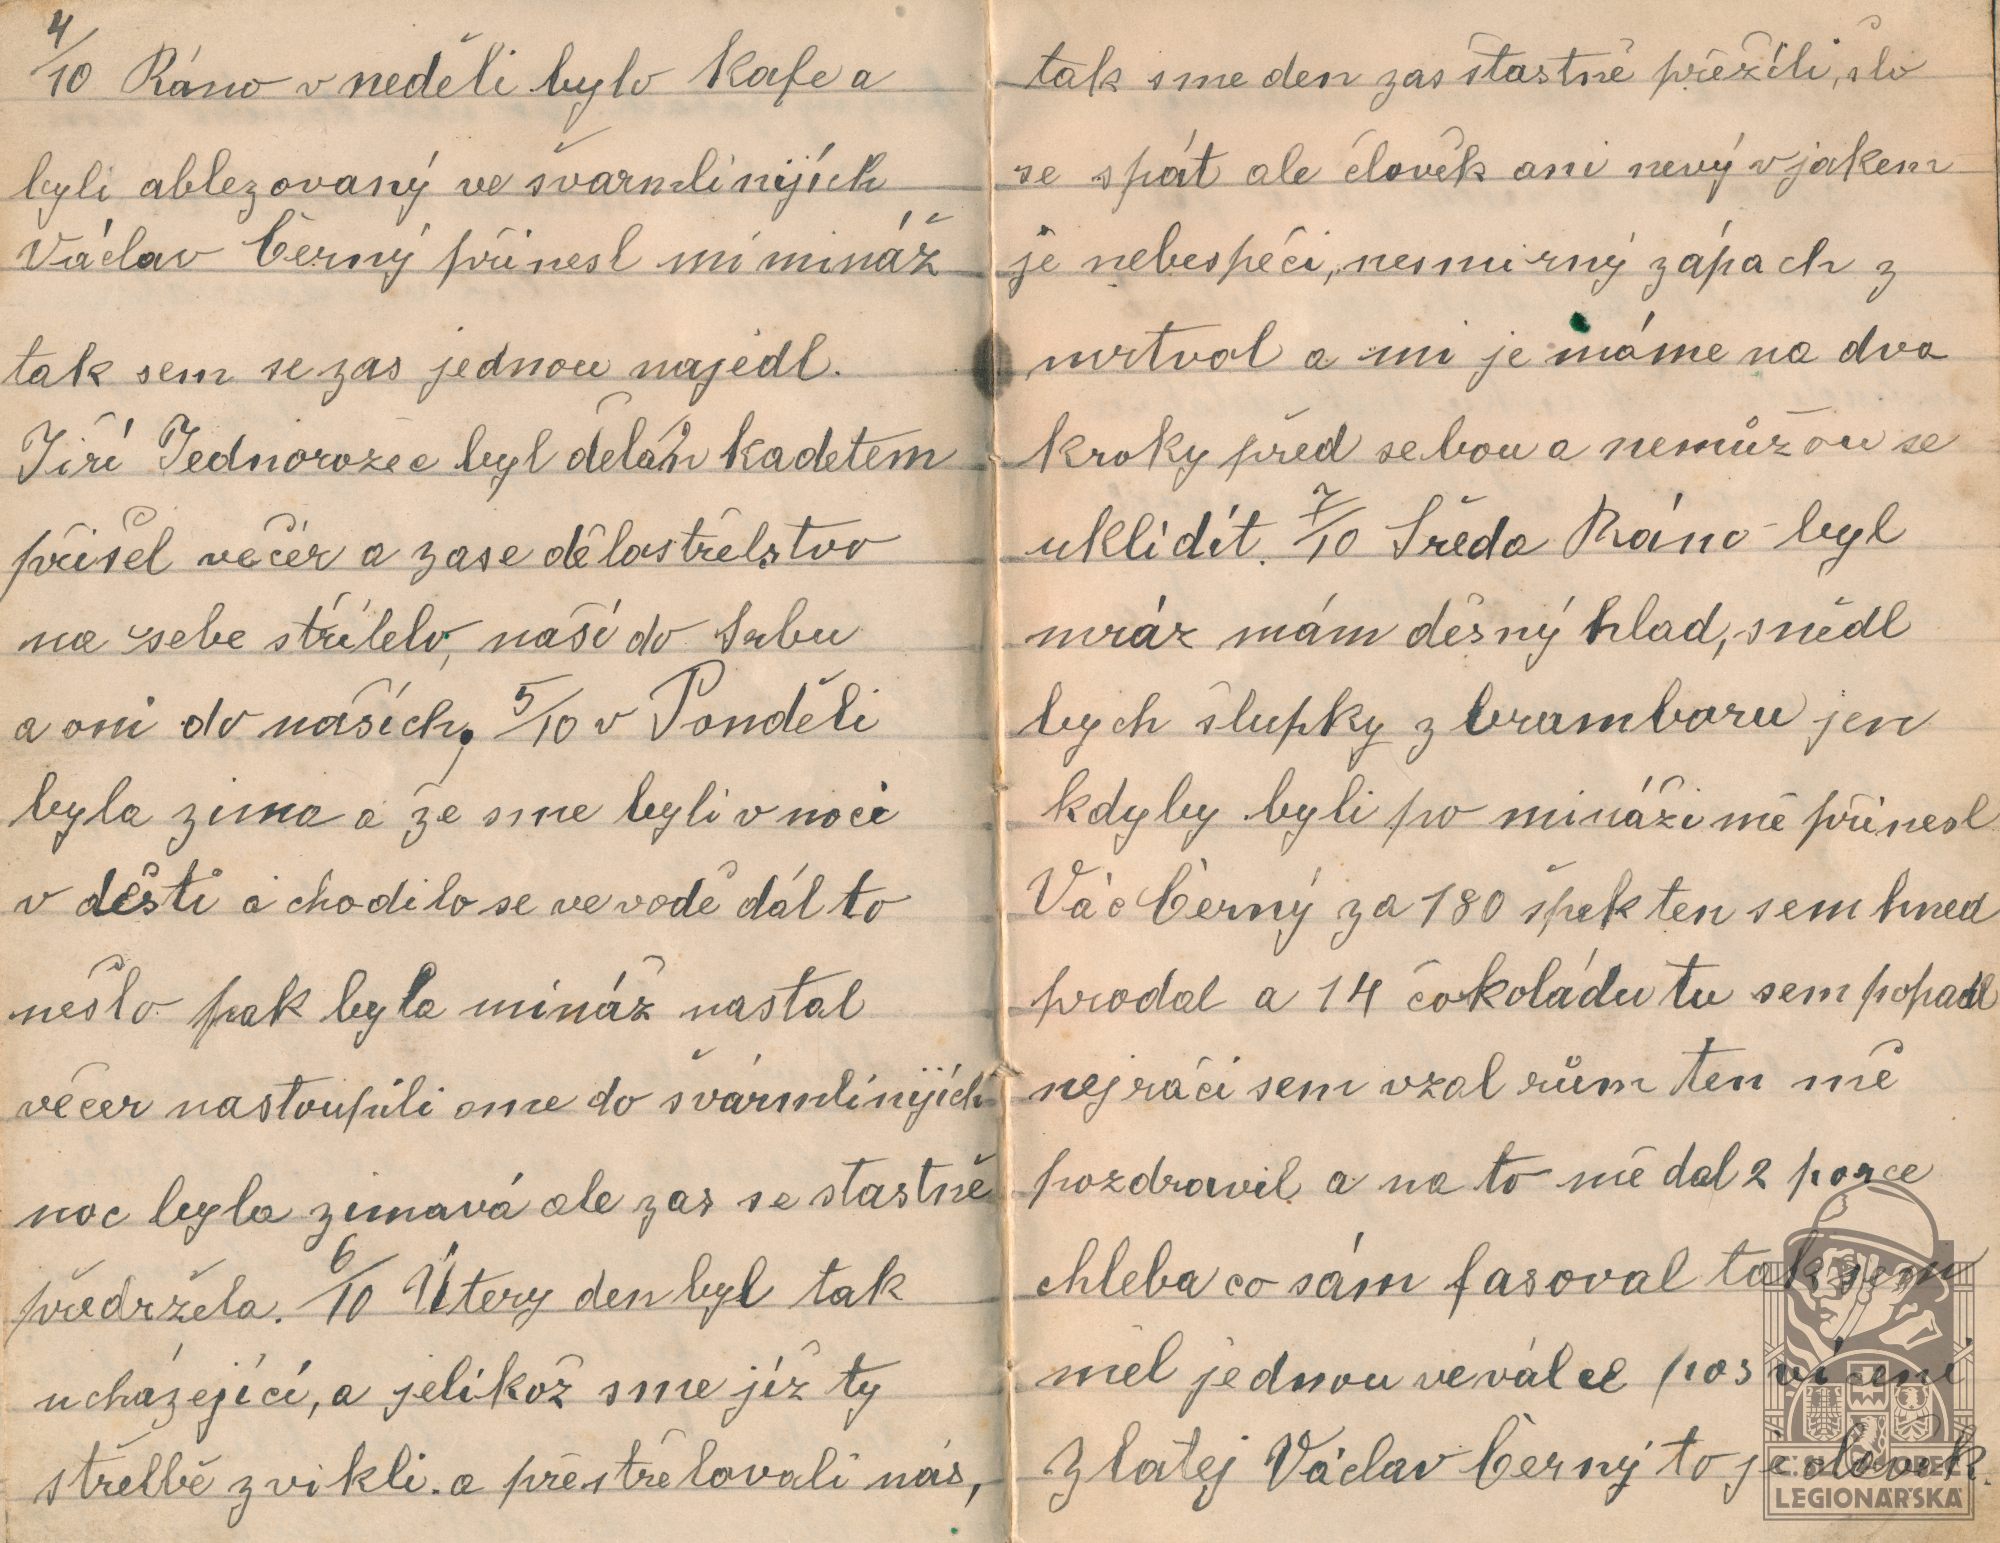 4/10 Ráno v neděli bylo kafe a
byli ablezovaný ve švarmlinijích
Václav Černý přinesl mi mináž
tak sem se zas jednou najedl.
Jiří Jednorožec byl dělán kadetem
přišel večér a zase dělastřelstvo
na sebe střílelo, naší do Srbu
a oni do našich, 5/10 v Ponděli
byla zima a že sme byli v noci
v děšti a chodilo se ve vodě dál to
nešlo pak byla mináž nastal
večer nastoupili sme do švármlinijích
noc byla zimavá ale zas se štastně
předržela. 6/10 Útery den byl tak
ucházející, a jelikož sme již ty
střelbě zvikli a přestřelovali nás,
tak sme den zas štastně přežili, šlo
se spát ale človék ani nevý v jakem
je nebespéči, nesmirný zápach z
mrtvol a mi je máme na dva
kroky před sebou a nemůžou se
uklidit. 7/10 Středa Ráno byl
mráz mám děsný hlad, snědl
bych šlupky z bramboru jen
kdyby byli po mináži mě přinesl
Vác Černý za 180 špek ten sem hned
prodal a 14 čokoládu tu sem popadl
nejráči sem vzal rům ten mě
pozdravil a na to mě dal 2 porce
chleba co sám fasoval tak sem
měl jednou ve válce posvíceni
Zlatej Václav Černý to je človék.
LEGIONÁŘSKÁ